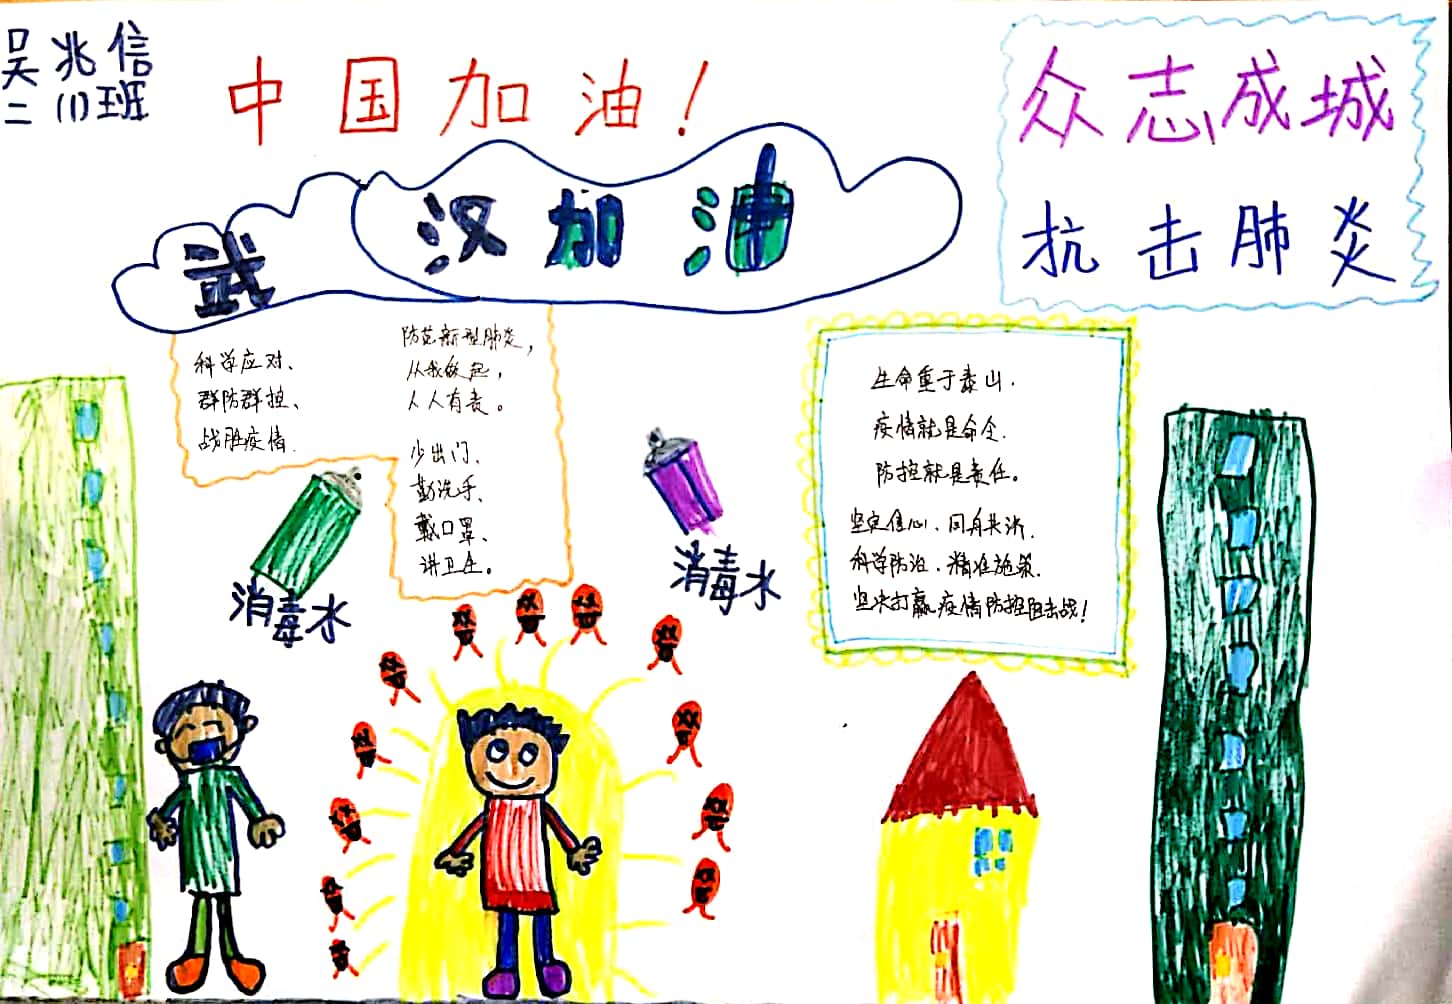 吴兆信
二(1)班
中国加油!
众志成城
抗击肺炎
武汉加油
科学应对、
群防群控、
战胜疫情.
防范新型肺炎,
从我做起,
人人有责。
少出门、
勤洗手、
戴口罩、
讲卫生。
消毒水
消毒水
生命重于泰山.
疫情就是命令.
防控就是责任。
坚定信心、同舟共济.
科学防治、精准施策.
坚决打赢疫情防控阻击战!